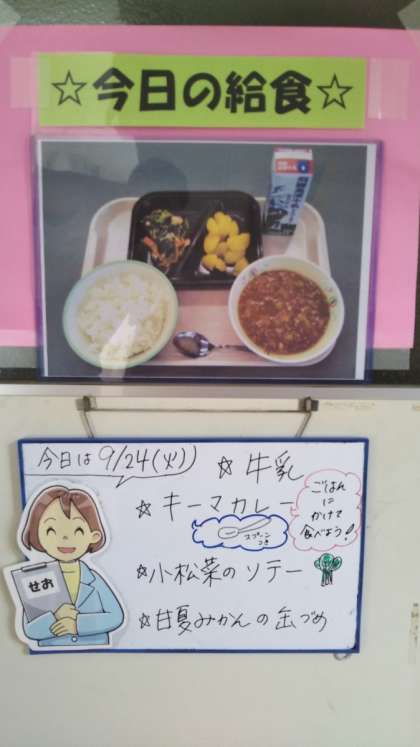 ☆今日の給食☆
今日は 9/24(火)
☆牛乳
☆キーマカレー
ごはん
に
かけて
食べよう!
スプーン
つき
☆小松菜のソテー
☆甘夏みかんの缶づめ
せお